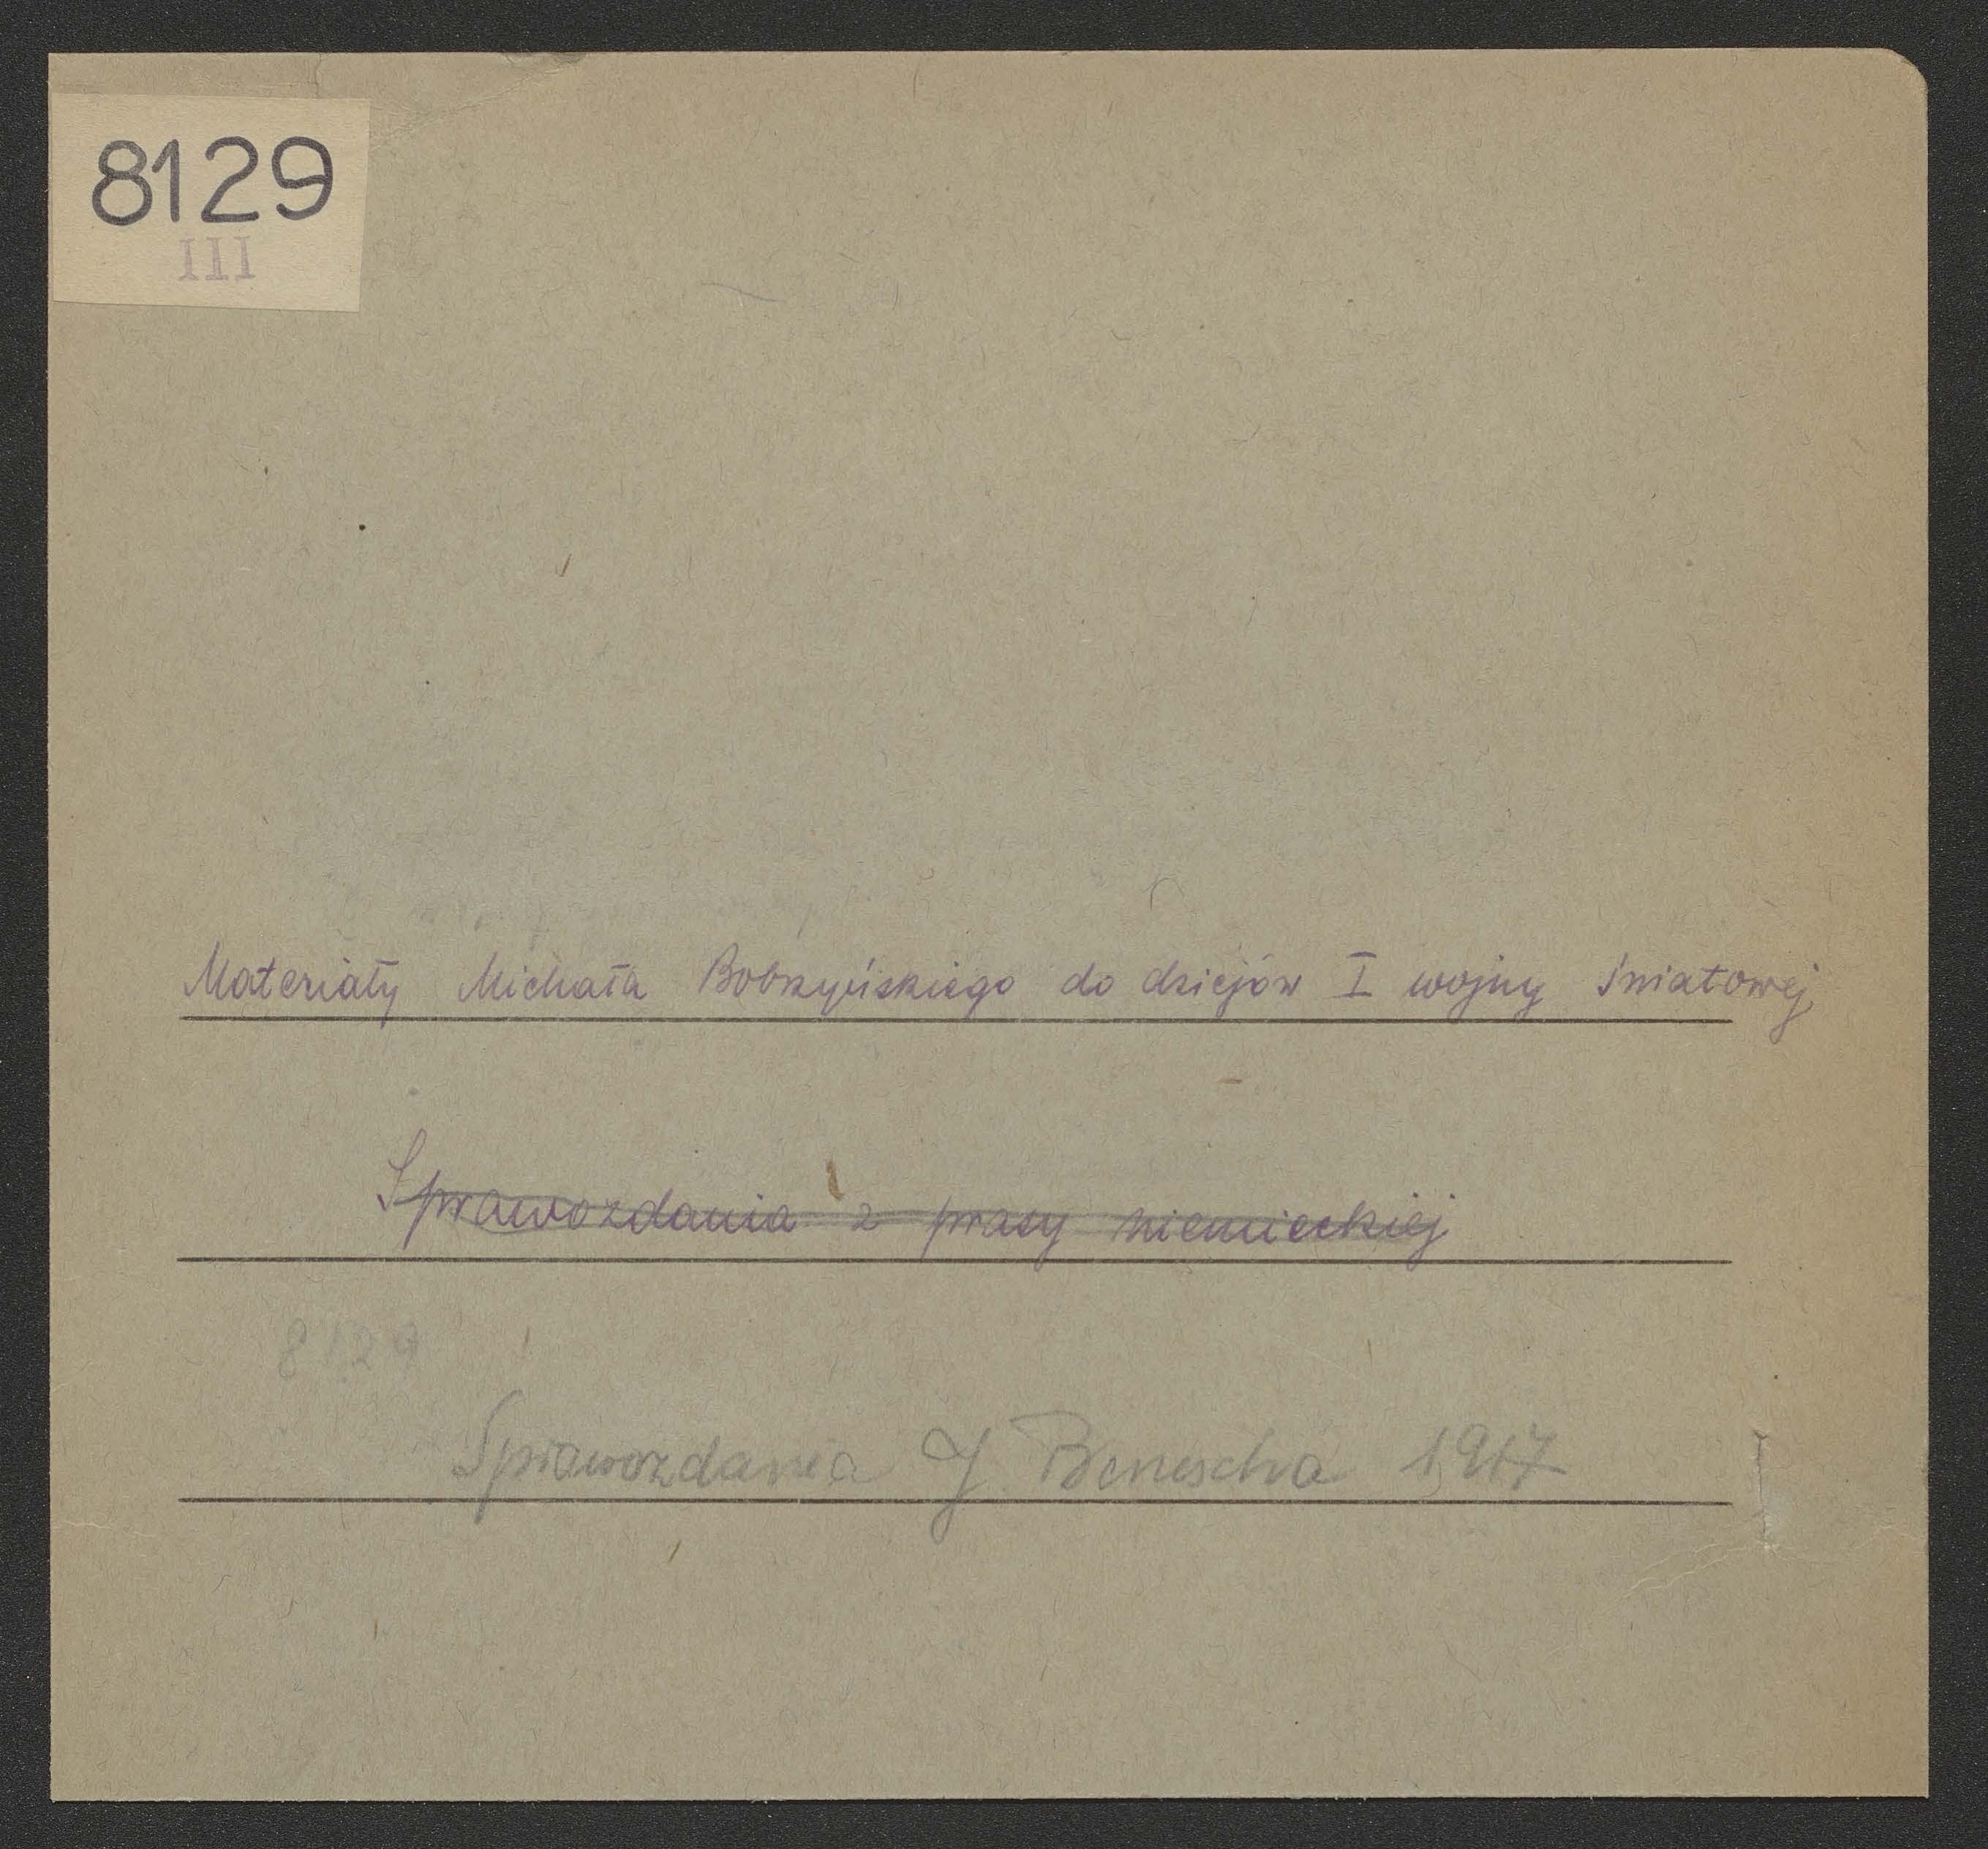 8129
III
Materiały Michała Bobrzyńskiego do dziejów I wojny światowej
Sprawozdania z prasy niemieckiej
8129
Sprawozdania J. Benescha 1917